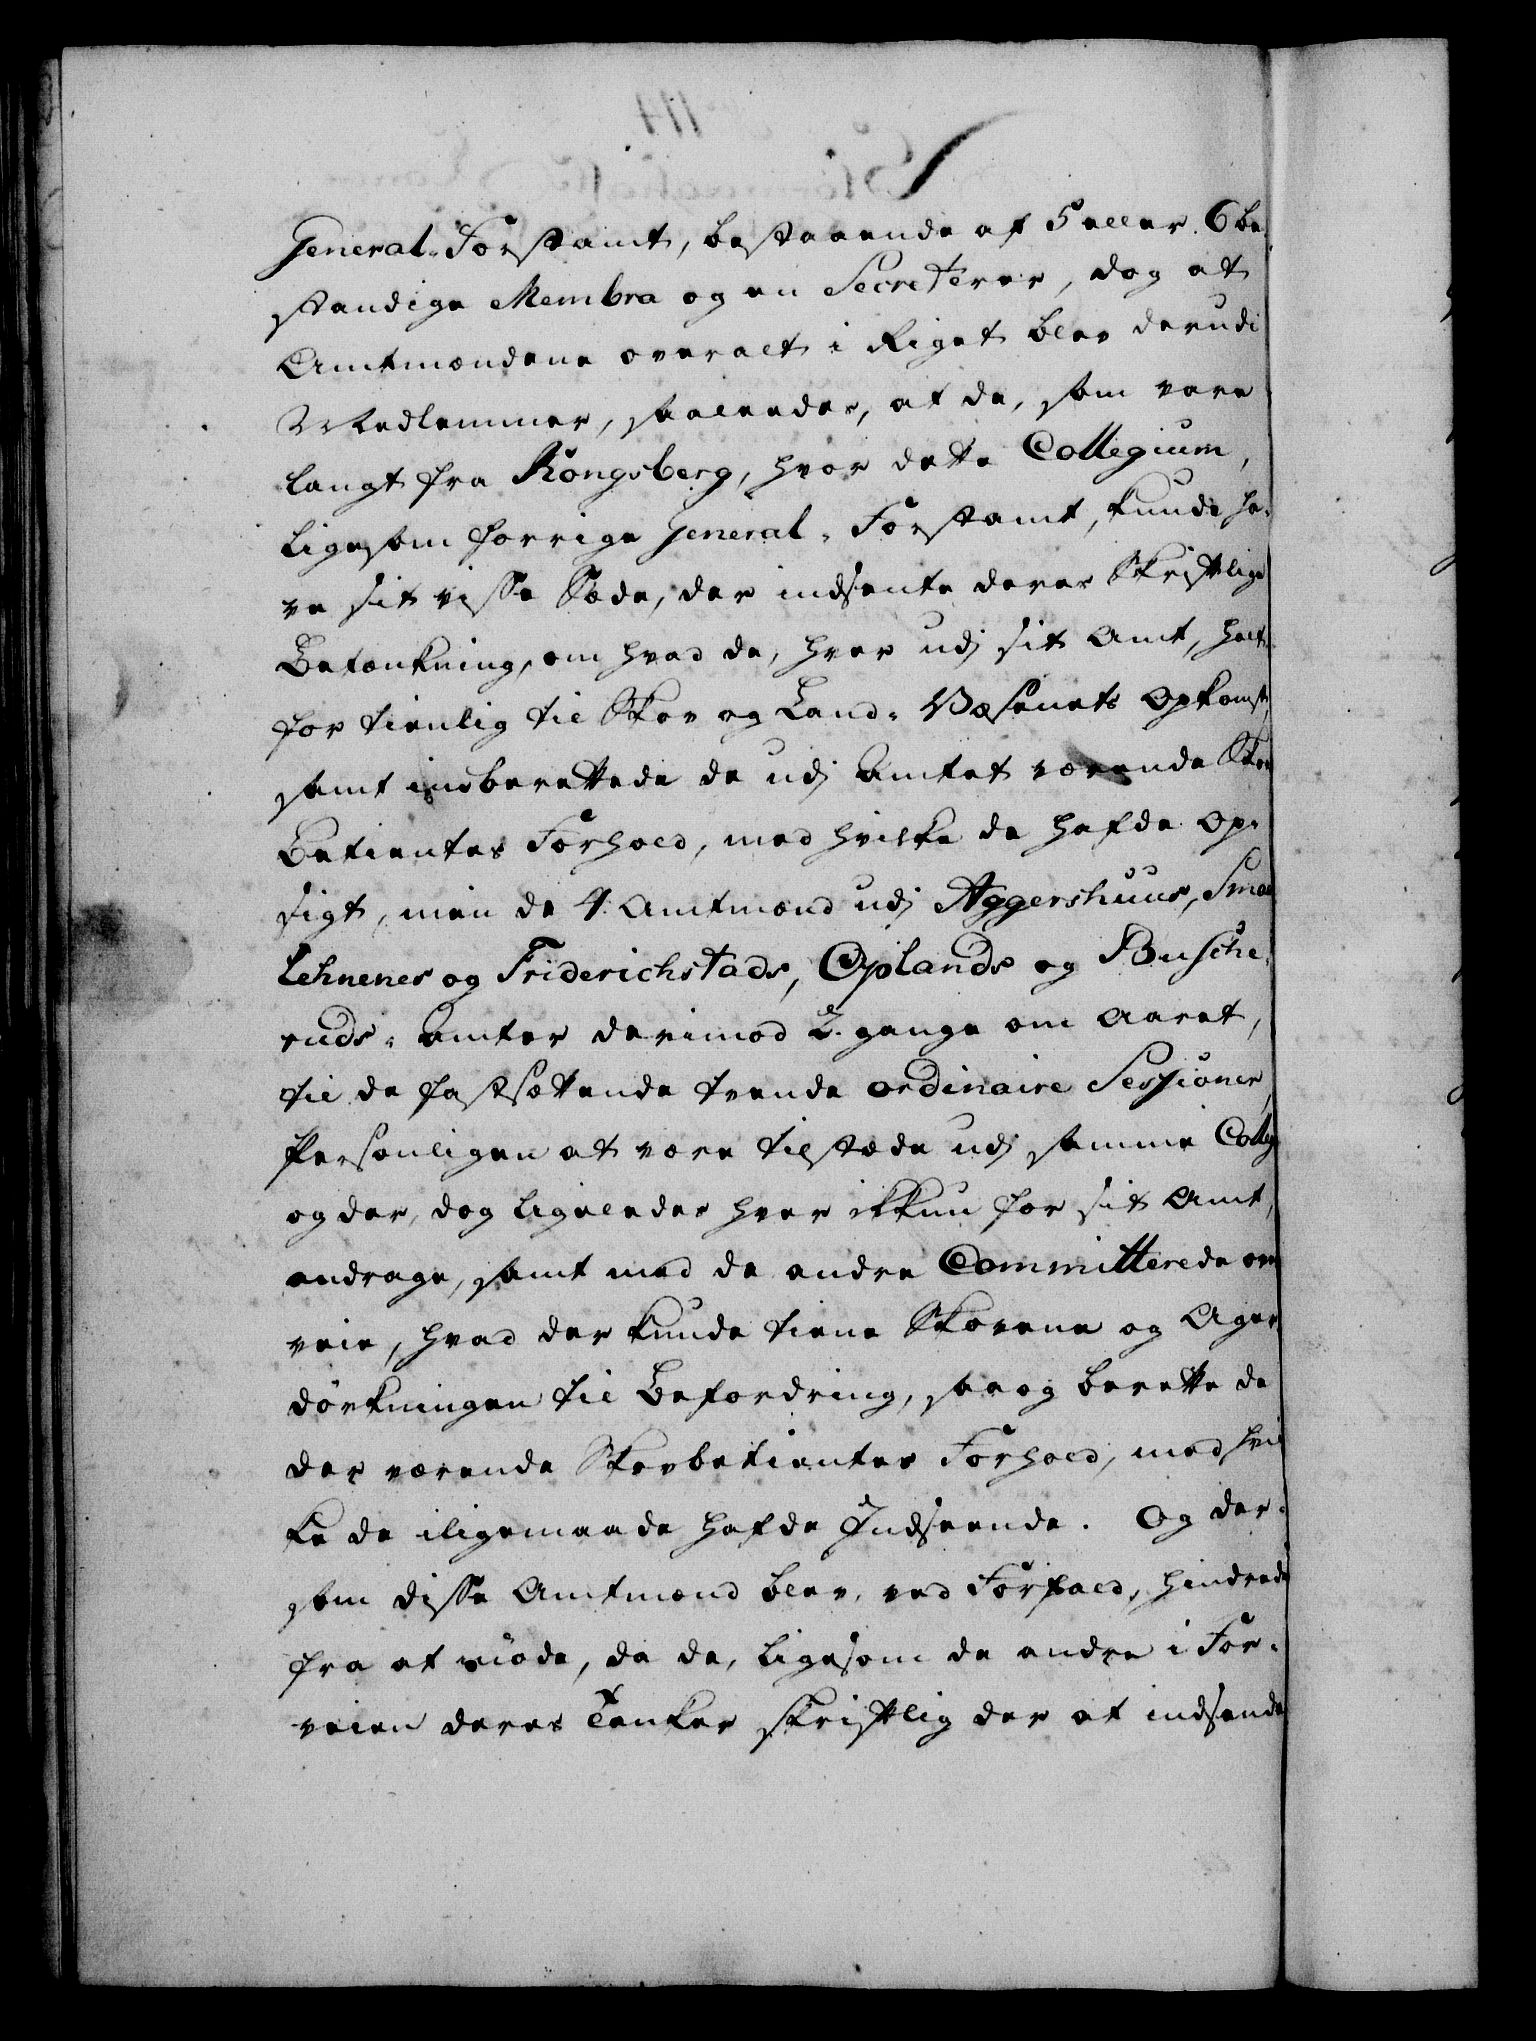 General-Forstamt, bestaaende af 5 eller 6 be-
standige Membra og en Secreterer, dog at
Amtmændene overalt i Riget blev derudi
Medlemmer, saaleedes, at de, som vare
langt fra Kongsberg, hvor dette Collegium,
ligesom forrige General-Forstamt, kunde ha-
ve sit visse Sæde, der indsente deres Skriftlige
Betænkning, om hvad de, hver udj sit Amt, holt
for tienlig til Skov og Land-Væsenets Opkomst,
samt indberettede de udj Amtet værende Skov
Betientes Forhold, med hvilke de hafde Op-
sigt, men de 4. Amtmænd udj Aggershuus, Smaa
Lehnenes og Friderichstads, Oplands og Busche-
ruds-Amter derimod 2. gange om Aaret,
til de fastsættende tvende ordinaire Sessioner,
Personligen at være tilstæde udj samme Colleg
og der, dog ligeledes hver ikkun for sit Amt,
andrage, samt med de andre Committerede over
veie, hvad der kunde tiene Skovene og Ager-
dörkningen til Befordring, saa og berette de
der værende Skovbetientes Forhold, med hvil
ke de iligemaade hafde Indseende. Og der-
som disse Amtmænd blev, ved Forfald, hindrede
fra at möde, da de, ligesom de andre i For-
veien deres Tanker skriftlig der at indsende